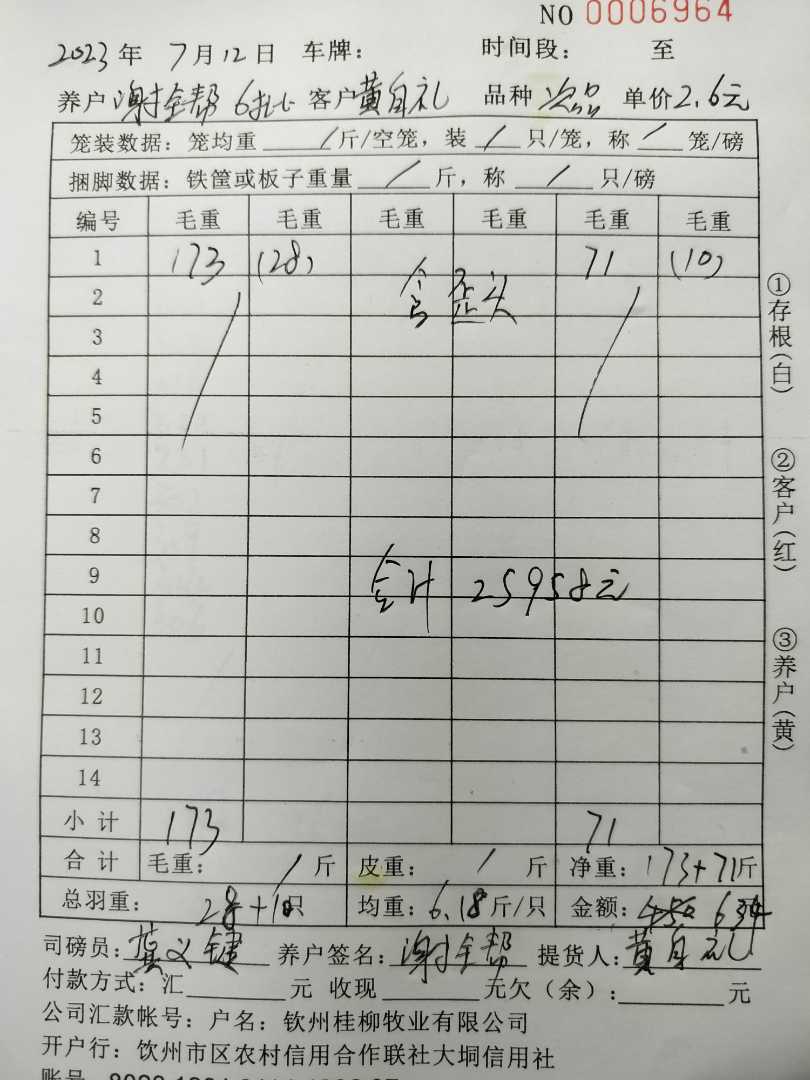 NO 0006964
2023年 7月12日 车牌： 时间段： 至
养户 谢全帮 6批 客户 黄自礼 品种 次品 单价2.6元
笼装数据：笼均重 / 斤/空笼，装 / 只/笼，称 / 笼/磅
捆脚数据：铁筐或板子重量 / 斤，称 / 只/磅
编号 毛重 毛重 毛重 毛重 毛重 毛重
1 173 (28) 71 (10)
2 含歪头
3
4
5
6
7
8
9 合计 25958元
10
11
12
13
14
小计 173 71
合计 毛重： / 斤 皮重： / 斤 净重：173+71斤
总羽重： 28+10只 均重：6.18斤/只 金额： 634
司磅员： 龚义键 养户签名：谢全帮 提货人：黄自礼
付款方式：汇 元 收现 元欠（余）： 元
公司汇款帐号：户名：钦州桂柳牧业有限公司
开户行：钦州市区农村信用合作联社大垌信用社
账号
①存根（白）
②客户（红）
③养户（黄）